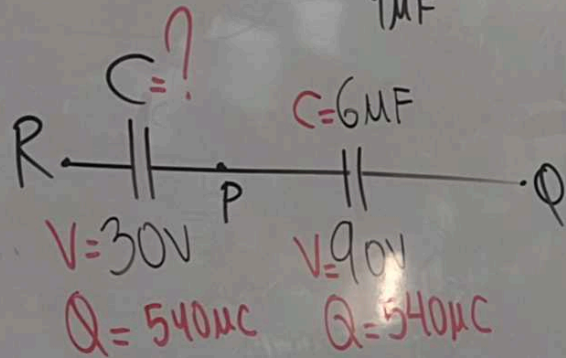 1MF
C=?
C=6MF
R
P
Q
V=30V
V=90V
Q=540MC
Q=540MC